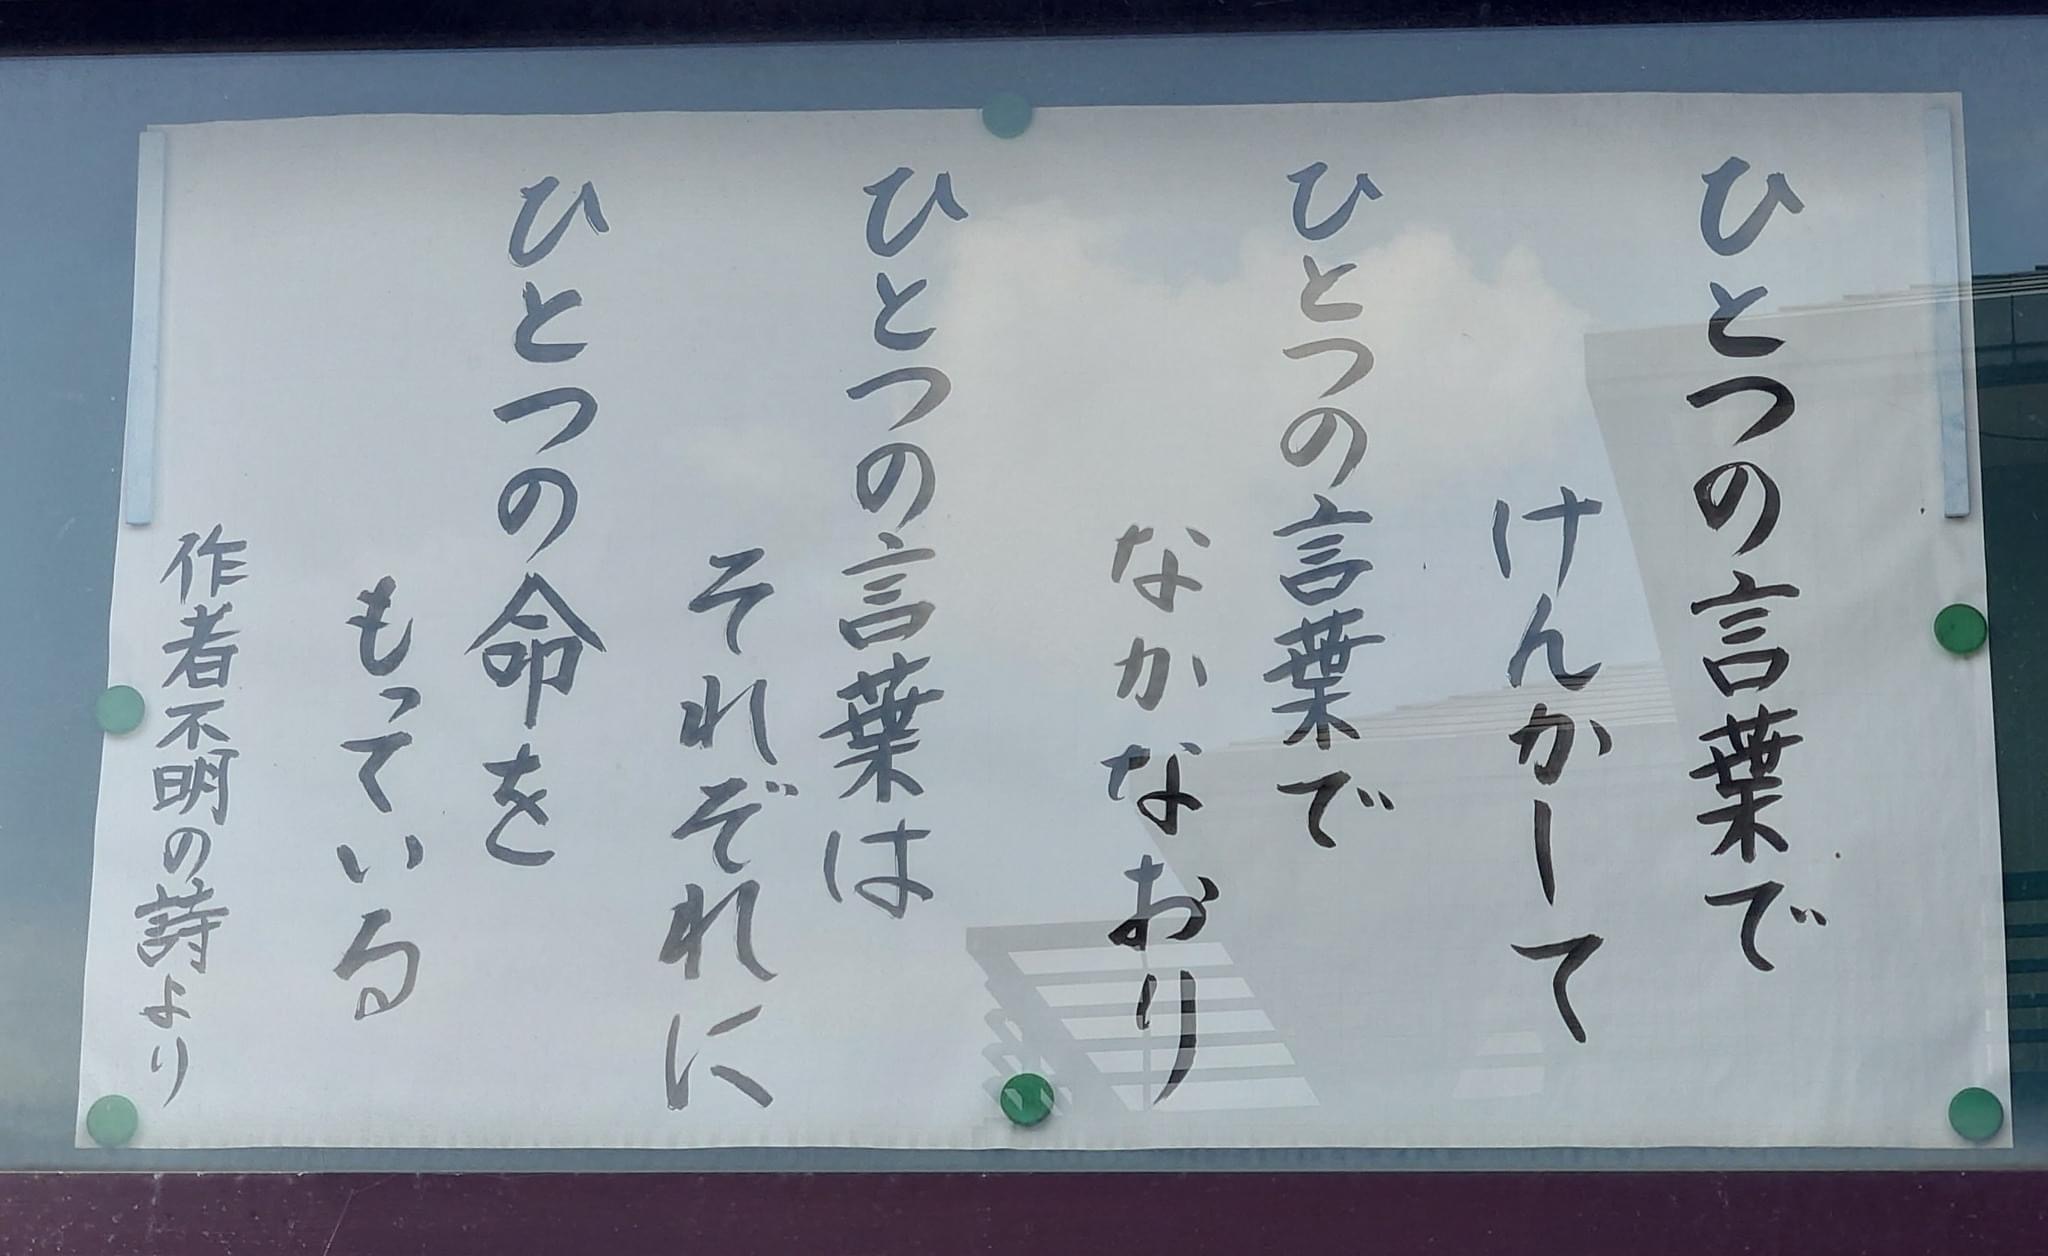 ひとつの言葉で
けんかして
ひとつの言葉で
なかなおり
ひとつの言葉は
それぞれに
ひとつの命を
もっている
作者不明の詩より